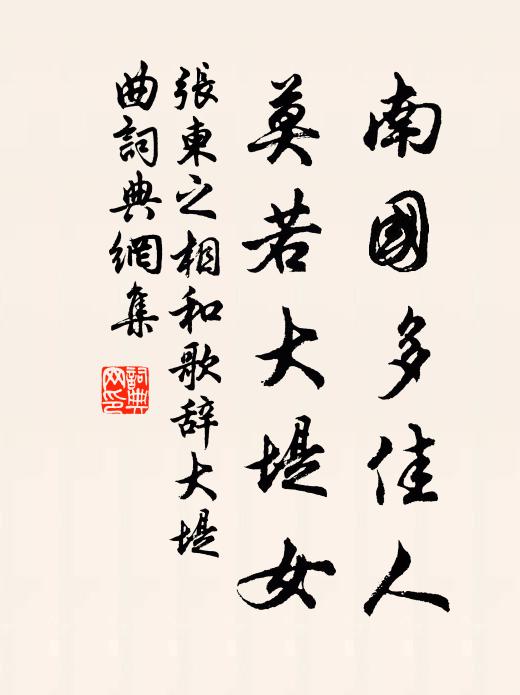 南國多佳人
莫若大堤女
張東之相和歌辞大堤
曲詞典網集
詞典網印